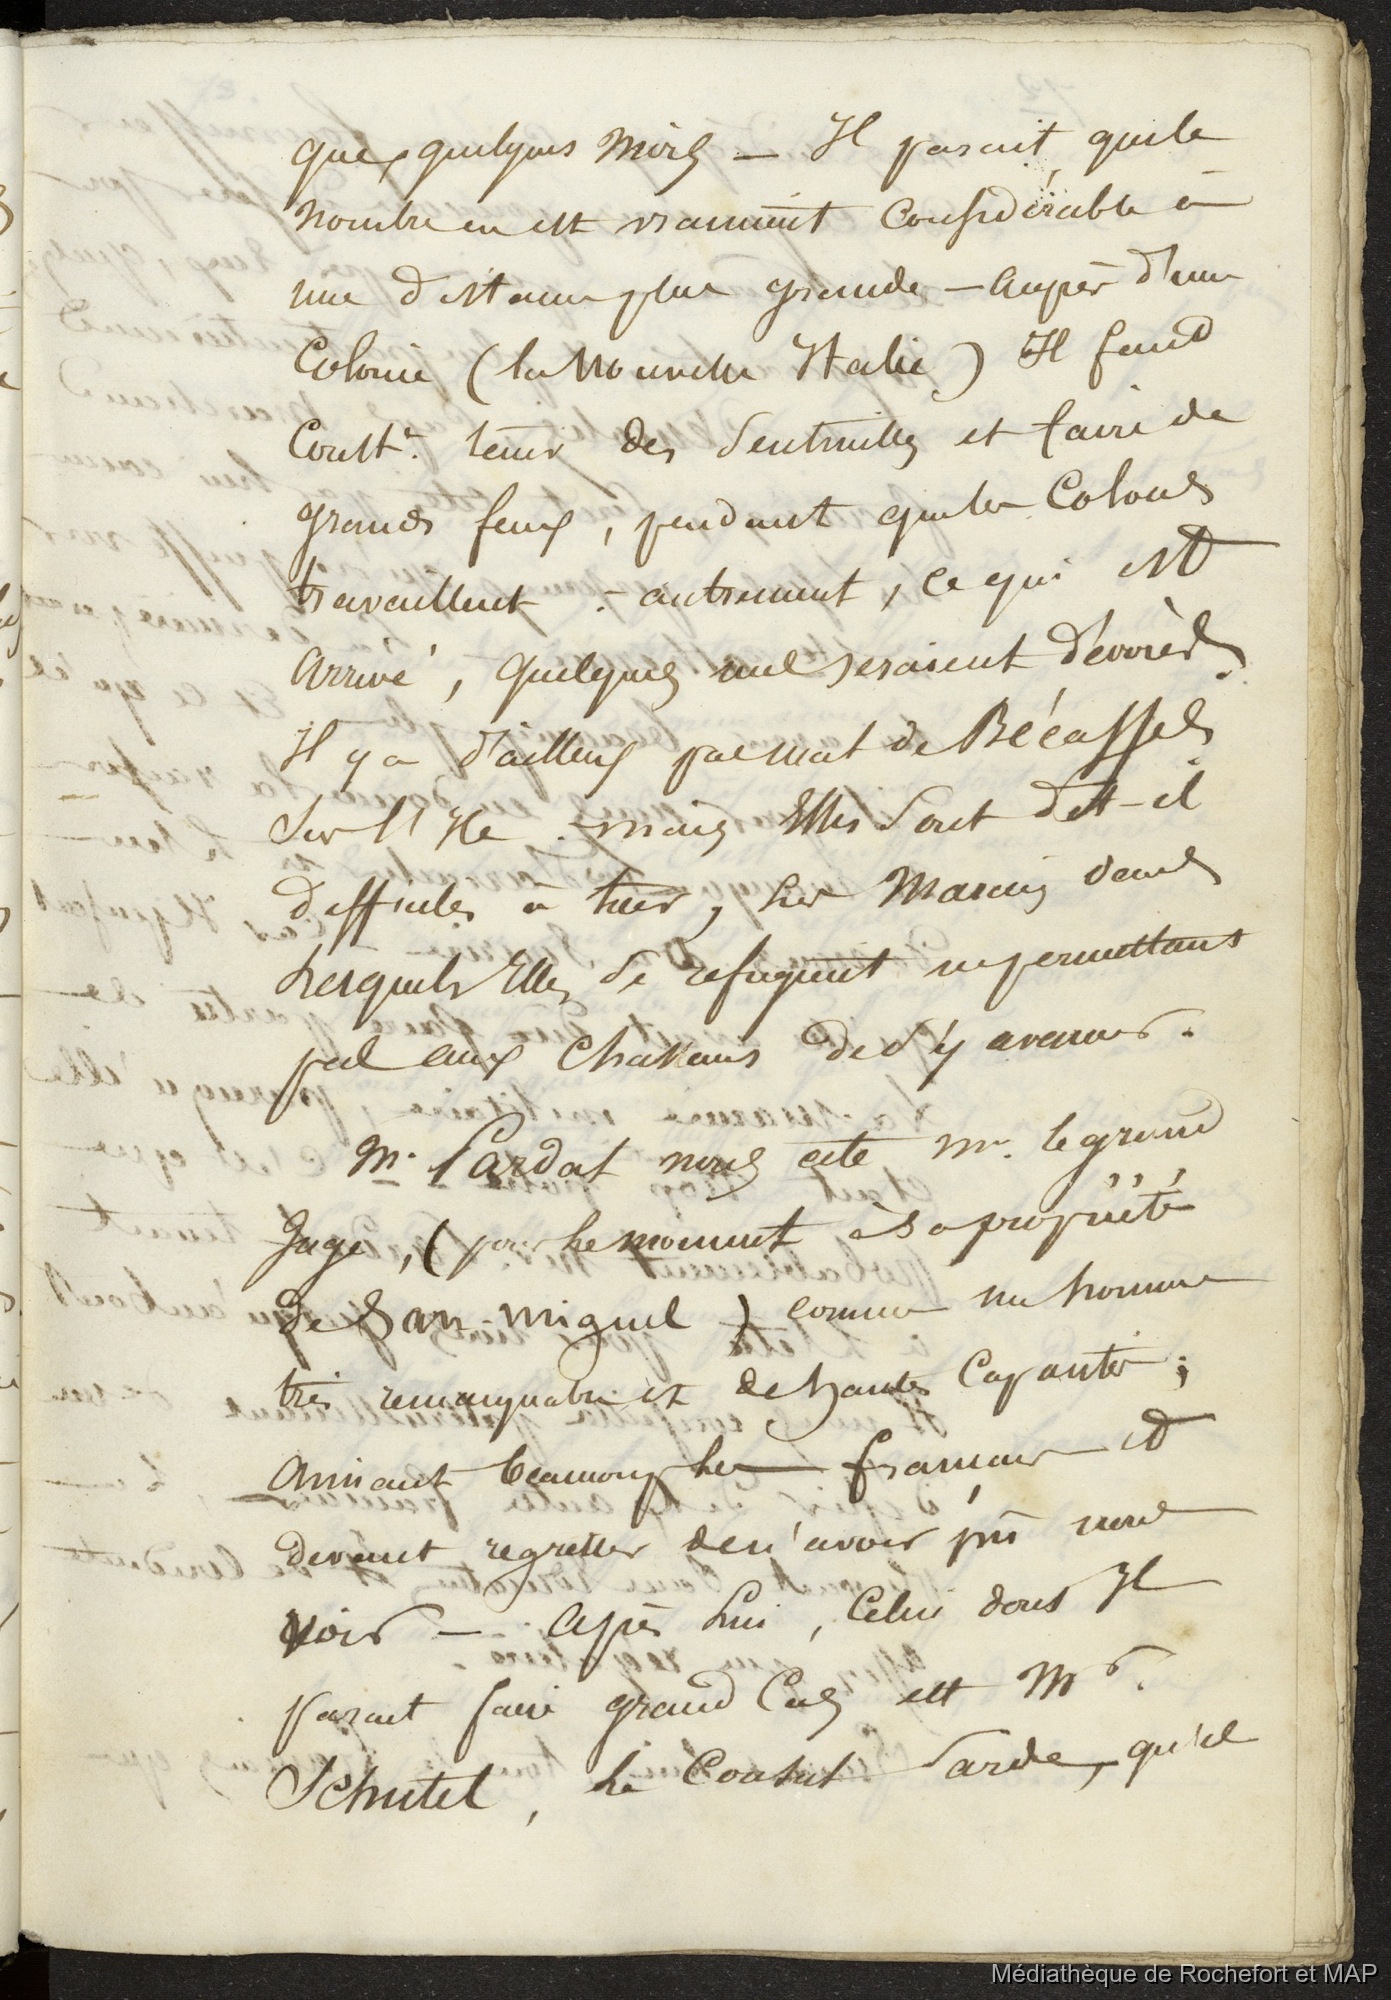 que quelques mois — Il parait que le
nombre en est vraiment considérable à
une distance plus grande — auprès d'une
Colonie (la Nouvelle Italie) Il faut
Const.t tenir des Sentinelles et faire de
grands feux, pendant que les Colons
travaillent - autrement, ce qui est
arrivé, quelques uns seraient dévorés.
Il y a d'ailleurs pas mal de Bécasses
Sur l'Ile - mais Elles Sont dit-il
difficiles à tuer, les Marais dans
Lesquels Elles Se refugient ne permettant
pas aux Chasseurs de S'y avancer.
Mr. Cardat nous cite Mr. le grand
Juge, (pour le moment à Sa propriété
de San-Miguel) comme un homme
très remarquable et de hautes Capacités;
aimant beaucoup les français et
devant regretter de n'avoir pû nous
voir — Après Lui, Celui dont Il
parait faire grand Cas est Mr.
Schutel, le Consul Sarde, qu'il
Médiathèque de Rochefort et MAP